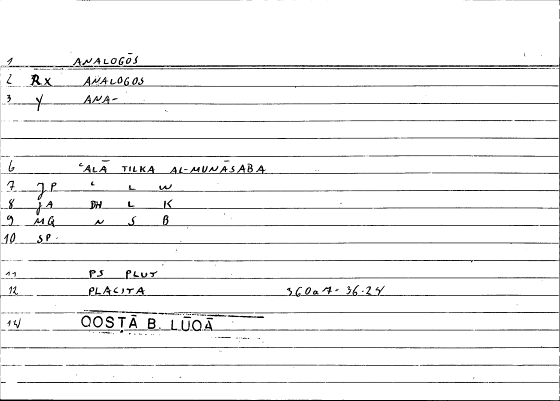 1 ANALOGŌS
2 Rx ANALOGOS
3 y ANA-
6 ʿALĀ TILKA AL-MUNĀSABA
7 JP ʿ L W
8 JA DH L K
9 MQ N S B
10 SP.
11 PS PLUT
12 PLACITA 360a7-36.24
14 QOSṬĀ B. LŪQĀ